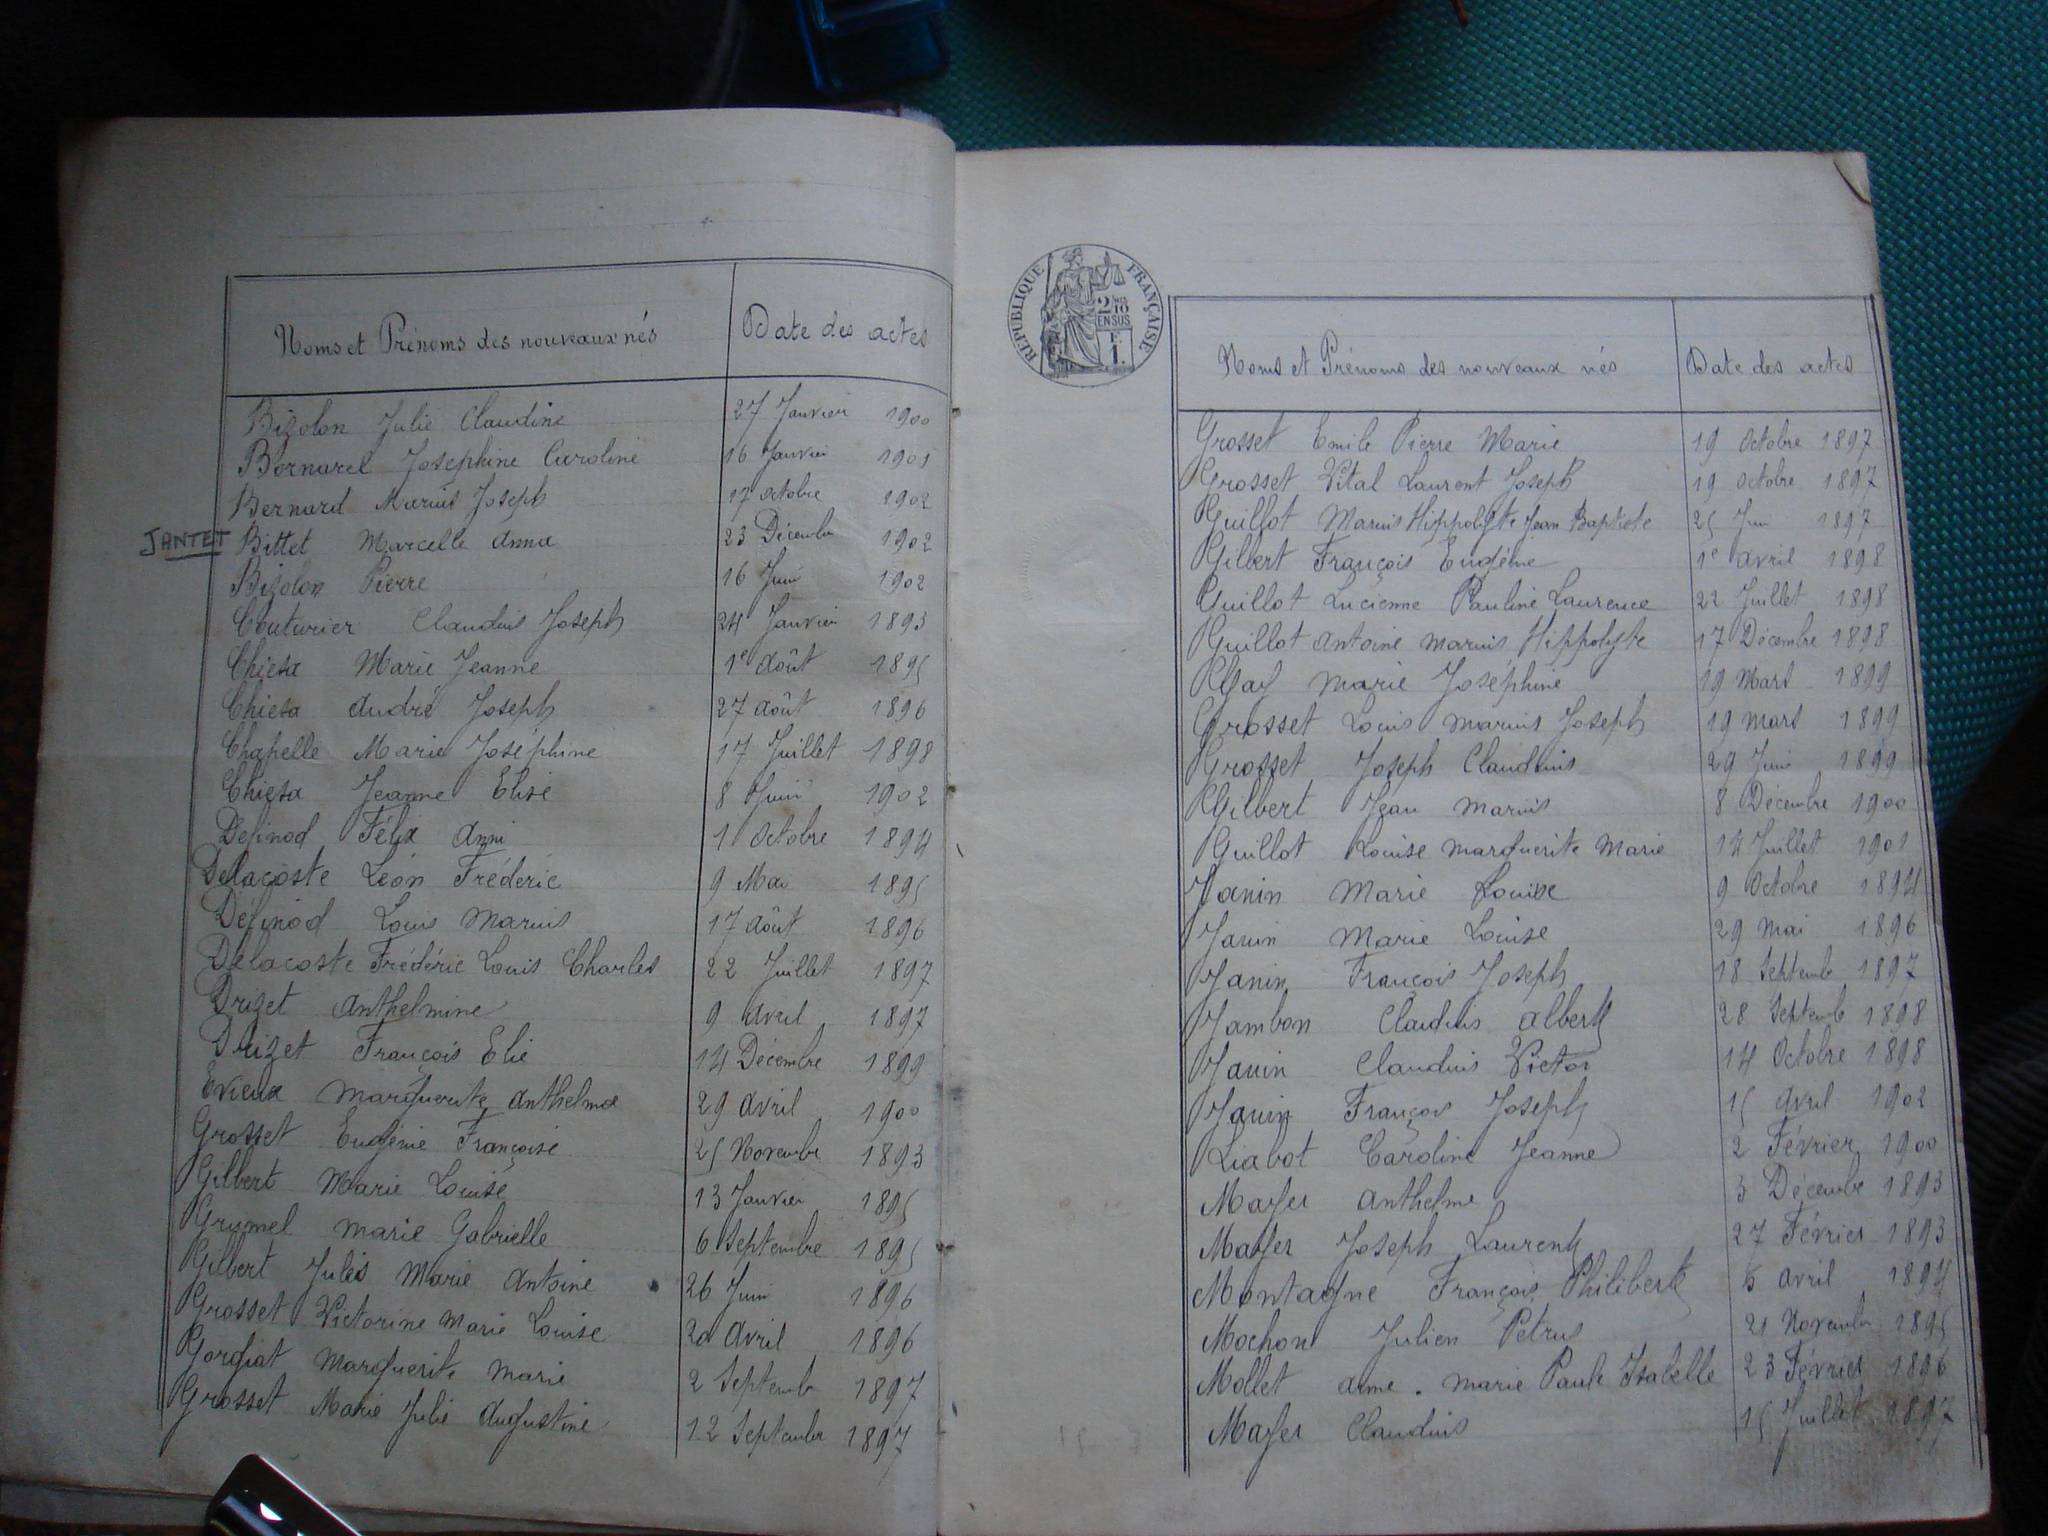 Noms et Prénoms des nouveaux nés Date des actes
Bizolon Julie Claudine 27 Janvier 1900
Bornarel Joséphine Caroline 16 Janvier 1901
Bernard Marius Joseph 17 octobre 1902
JANTET Bittet Marcelle Anna 23 Décembre 1902
Bizolon Pierre 16 Juin 1902
Couturier Claudius Joseph 24 Janvier 1893
Chiesa Marie Jeanne 1e Août 1895
Chiesa André Joseph 27 Août 1896
Chapelle Marie Joséphine 17 Juillet 1898
Chiesa Jeanne Elise 8 Juin 1902
Définod Félix 1 Octobre 1894
Delacoste Léon Fréderic 9 Mai 1895
Définod Louis Marius 17 Août 1896
Delacoste Frédéric Louis Charles 22 Juillet 1897
Drizet Anthelmine 9 Avril 1897
Drizet François Elie 14 Décembre 1899
Evieux Marguerite Anthelma 29 Avril 1900
Grosset Eugénie Françoise 25 Novembre 1893
Gilbert Marie Louise 13 Janvier 1895
Grumel Marie Gabrielle 6 Septembre 1895
Gilbert Jules Marie Antoine 26 Juin 1896
Grosset Victorine Marie Louise Avril 1896
Gordiat Marguerite Marie 2 Septembre 1897
Grosset Marie Julie Augustine 12 Septembre 1897
RÉPUBLIQUE FRANÇAISE
2/10
EN SUS
F.
1.
Noms et Prénoms des nouveaux nés Date des actes
Grosset Emile Pierre Marie 19 Octobre 1897
Grosset Vital Laurent Joseph 19 octobre 1897
Guillot Marius Hippolyte Jean Baptiste 25 Juin 1897
Gilbert François Eugène 1e Avril 1898
Guillot Lucienne Pauline Laurence 22 Juillet 1898
Guillot Antoine Marius Hippolyte 17 Décembre 1898
Gay Marie Joséphine 19 Mars 1899
Grosset Louis Marius Joseph 19 mars 1899
Grosset Joseph Claudius 29 Juin 1899
Gilbert Jean Marius 8 Décembre 1900
Guillot Louise Marguerite Marie 14 Juillet 1901
Janin Marie Louise 9 Octobre 1894
Janin Marie Louise 29 Mai 1896
Janin François Joseph 18 Septembre 1897
Jambon Claudius Albert 28 Septemb 1898
Janin Claudius Victor 14 Octobre 1898
Janin François Joseph 15 Avril 1902
Liabot Caroline Jeanne 2 Février 1900
Mayer Anthelme 3 Décembre 1893
Mayer Joseph Laurent 27 Février 1893
Montagne François Philibert avril 1894
Mochon Julien Pétrus 21 Novembre 1895
Mollet Marie Paule Isabelle 23 Février 1896
Mayer Claudius 15 Juillet 1897